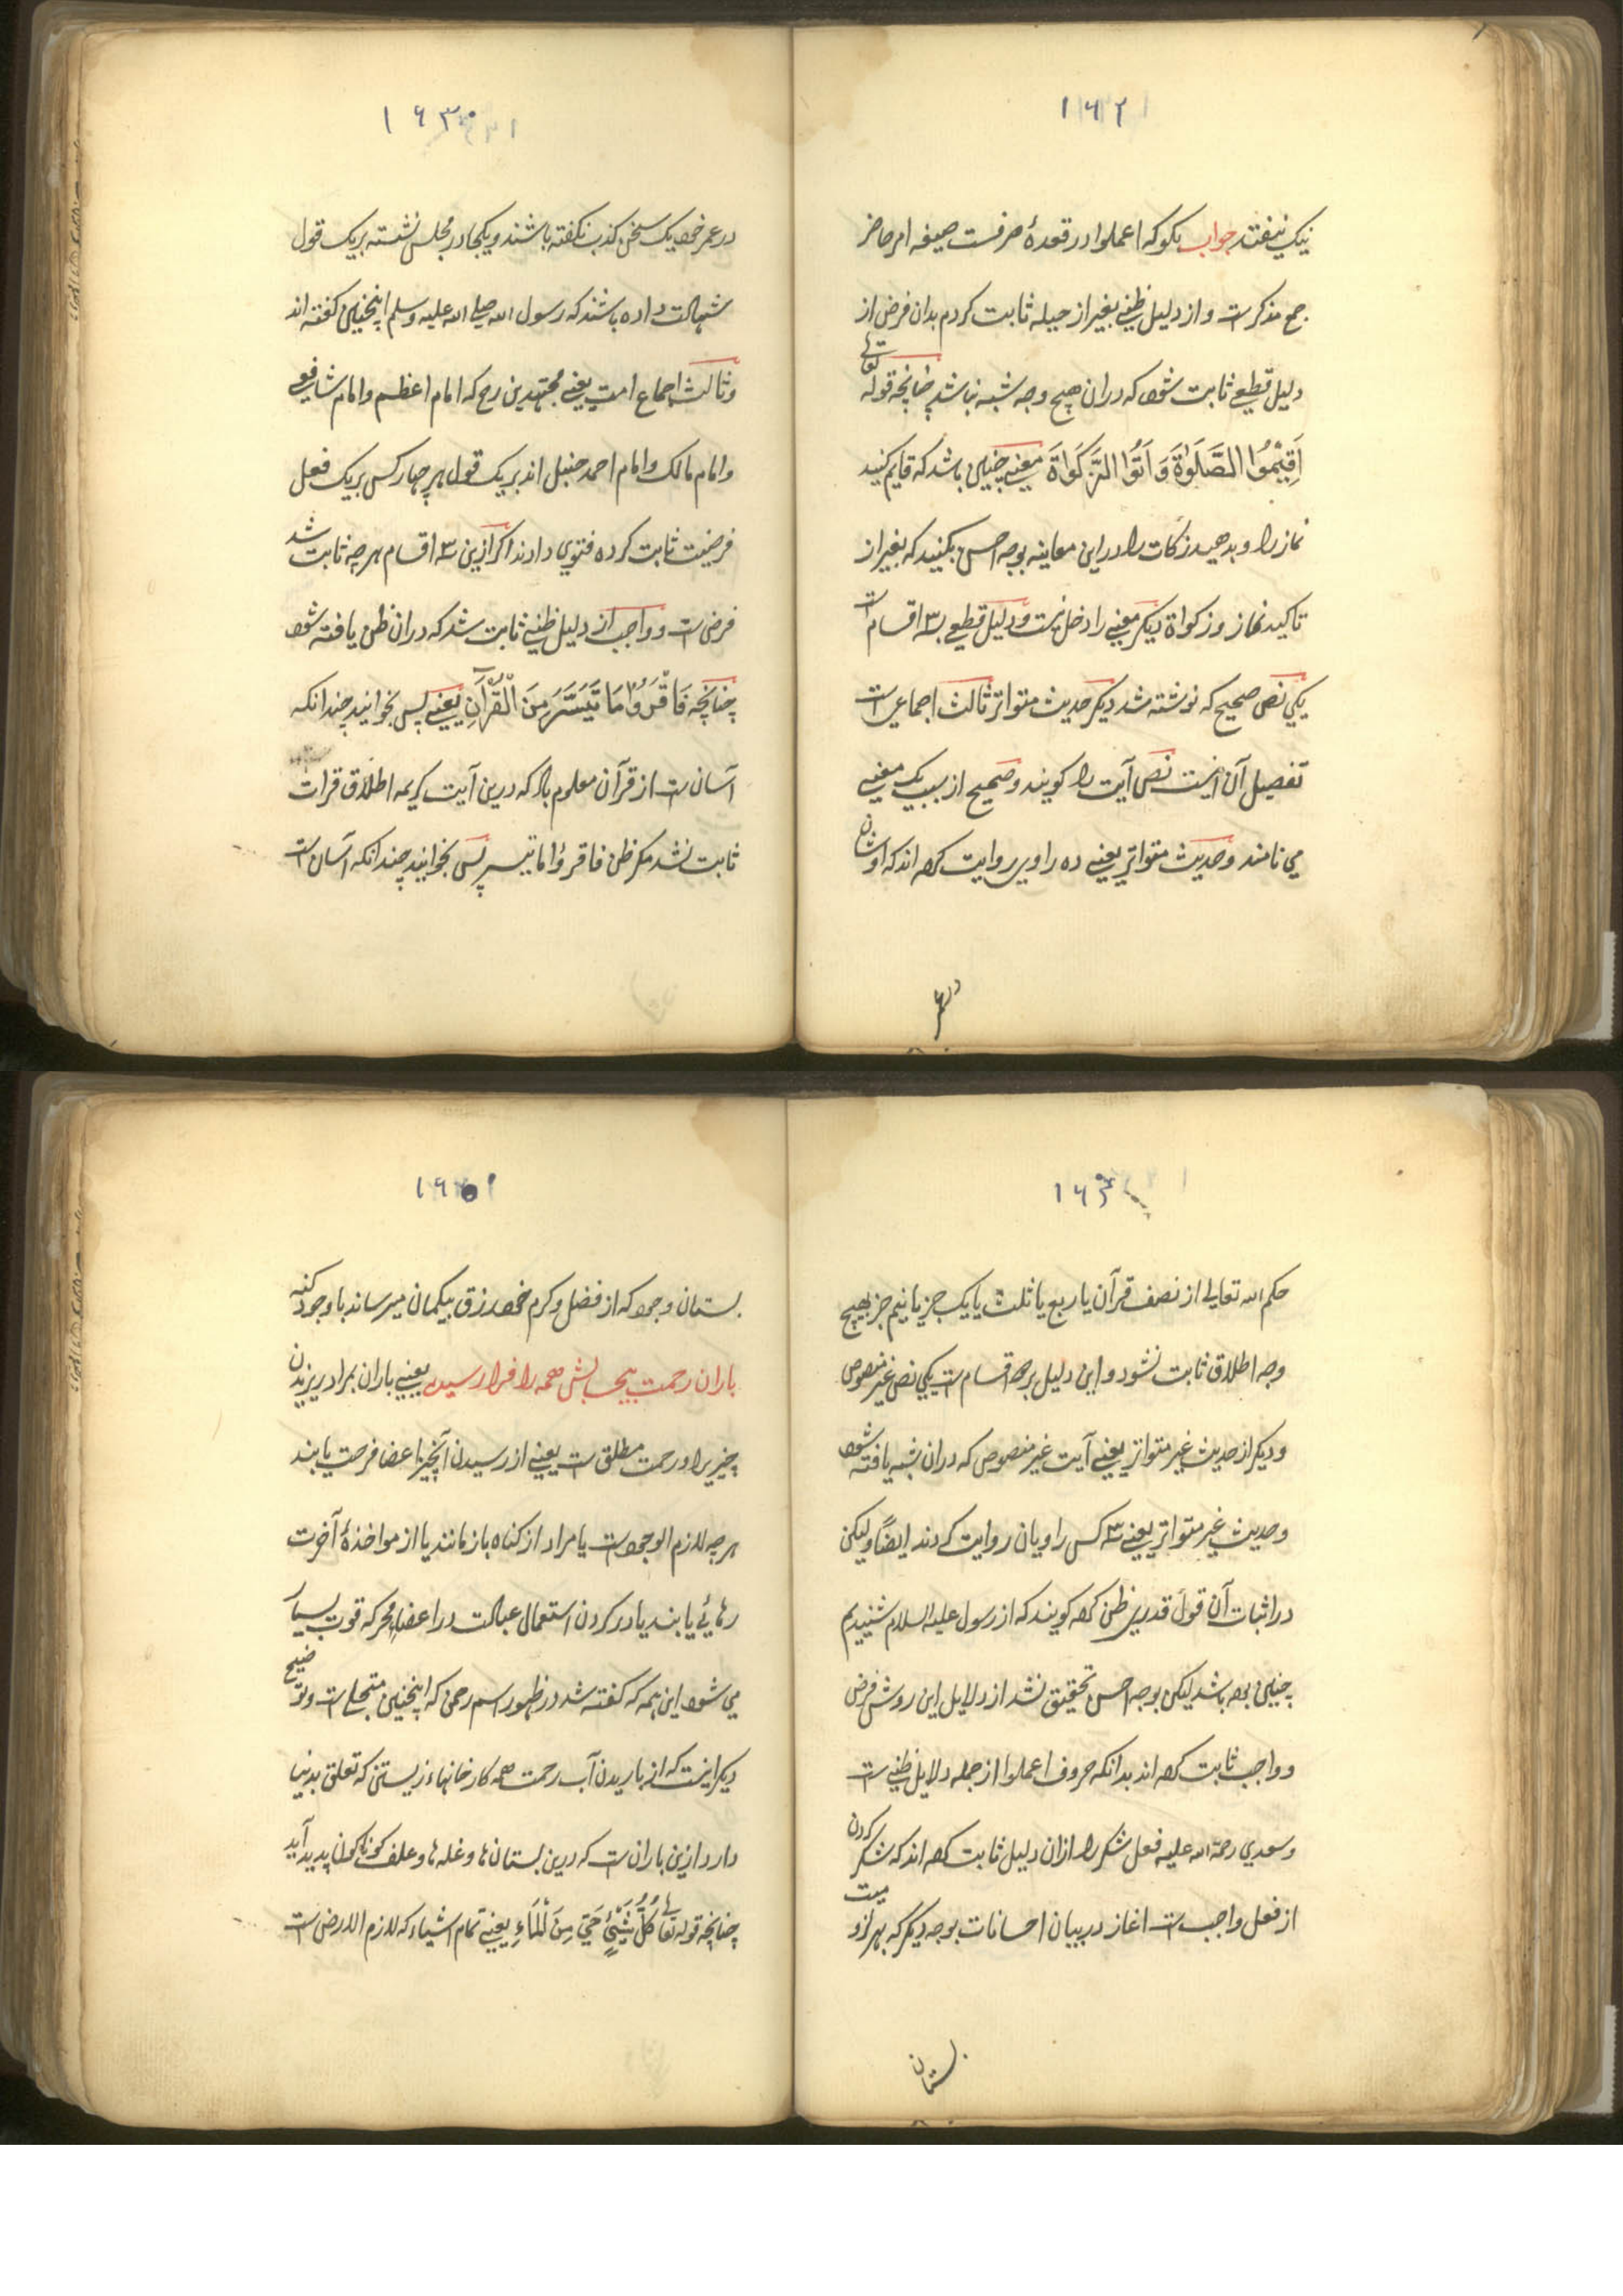 ۱۶۲
نیک نیفتد جواب بگو که اعملوا در قعدهٔ صرفست صیغه امر حاضر
جمع مذکرست و از دلیل ظنی بغیر از حیله ثابت کردم بدان فرض از
دلیل قطعی ثابت شود که دران هیچ وجه شبه نباشد چنانچه قوله تعالی
اَقِیْمُوا الصَّلَوٰةَ وَ اٰتَوُا الزَّکَوٰاةَ معنی چنین باشد که قایم کنید
نماز را و بدهید زکات را درین معاینه بوجه احسن بکنید که بغیر از
تاکید نماز و زکواة دیگر معنی را دخل نیست و دلیل قطعی بر ۳ اقسام است
یکی نص صحیح که نوشته شد دیگر حدیث متواتر ثالث اجماعی است
تفصیل آن اینست نص آیت را گویند و صحیح از سبب یک معنی
می نامند و حدیث متواتر یعنی ده راوی روایت کرده اند که اوشان
در عمر
۱۶۳
در عمر خود یک سخن کذب نگفته باشند و یکجا در مجلس نشسته بر یک قول
شهادت داده باشند که رسول الله صلی الله علیه وسلم اینچنین گفته اند
و ثالث اجماع امت یعنی مجتهدین رح که امام اعظم و امام شافعی
و امام مالک و امام احمد حنبل اند بر یک قول هر چهار کس بر یک فعل
فرضیت ثابت کرده فتوی دادند اگر ازین ۳ اقسام هر چه ثابت شد
فرض است و واجب از دلیل ظنی ثابت شد که دران ظن یافته شود
چنانچه فَاقْرَؤُا مَا تَیَسَّرَ مِنَ الْقُرْآنِ یعنی پس بخوانید چندانکه
آسان است از قرآن معلوم باد که درین آیت کریمه اطلاق قرات
ثابت نشد مگر ظن فاقرؤا ما تیسر پس بخوانید چندانکه آسان است
۱۶۴
حکم الله تعالی از نصف قرآن یا ربع یا ثلث یا یک جز یا نیم جز بهیچ
وجه اطلاق ثابت نشود و این دلیل بر دو اقسام است یکی نص غیر منصوص
و دیگر از حدیث غیر متواتر یعنی آیت غیر منصوص که دران شبه یافته شود
و حدیث غیر متواتر یعنی ۳ کس راویان روایت کردند ایضاً ولیکن
در اثبات آن قول قدری ظن کرده گویند که از رسول علیه السلام شنیدیم
چنین بوده باشد لیکن بوجه احسن تحقیق نشد از دلایل این روش فرض
و واجب ثابت کرده اند بدانکه حروف اعملوا از جمله دلایل ظنی است
و سعدی رحمة الله علیه فعل شکر را ازان دلیل ثابت کرده اند که شکر کردن
از فعل واجب است اغاز در بیان احسانات بوجه دیگر که بهر از و میت
بستان
۱۶۵
بستان وجود که از فضل و کرم خود رزق بیگمان میرساند با وجود گنه
باران رحمت بیحسابش همه را فرا رسیده یعنی باران بمراد ریزیدن
چیز یراد و رحمت مطلق است یعنی از رسیدن آنچیز اعضا فرحت یابند
هر چه لازم الوجود است یا مراد از گناه باز مانند یا از مواخذهٔ آخرت
رهائی یابند یا در کردن استعمال عبادت در اعضای محرکه قوت بسیار
می شود این همه که گفته شد در ظهور اسم رحمن که اینچنین متجلی است و توضیح
دیگر اینست که از باریدن آب رحمت همه کارخانهاء زیستنی که تعلق بدنیا
دارد ازین باران است که درین بستان ها و غله ها و علف گوناگون پدید آید
چنانچه قوله تعالی کُلُّ شَیْئٍ حَیٍّ مِنَ الْمَاءِ یعنی تمام اشیاء که لازم الارض است